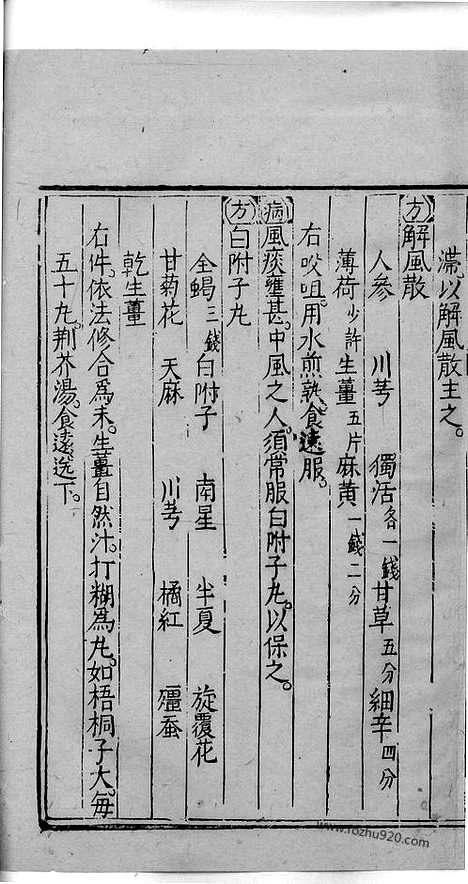 滯。以解風散主之。
方 解風散
人參 川芎 獨活各一錢 甘草五分 細辛四分
薄荷少許 生薑五片 麻黄一錢二分
右㕮咀。用水煎熟。食遠服。
病 風痰壅甚。中風之人。須常服白附子丸。以保之。
方 白附子丸
全蝎三錢 白附子 南星 半夏 旋覆花
甘菊花 天麻 川芎 橘紅 殭蚕
乾生薑
右件依法修合爲末。生薑自然汁。打糊爲丸。如梧桐子大。每
五十丸。荆芥湯。食遠送下。
www.rozhu920.com